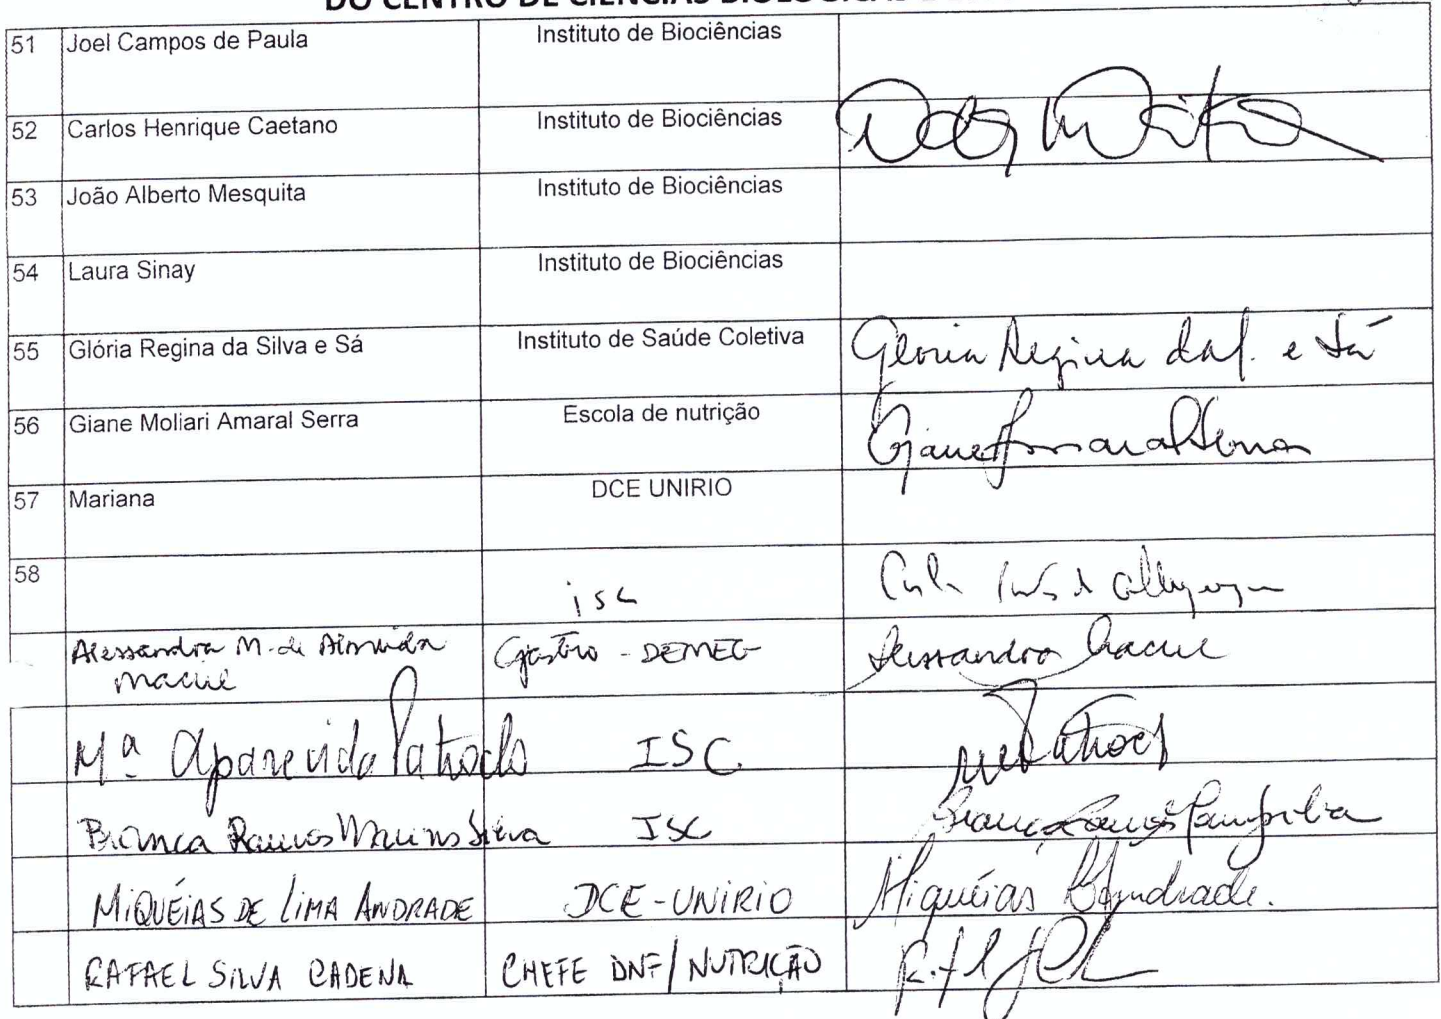 DO CENTRO DE CIÊNCIAS BIOLÓGICAS
51 Joel Campos de Paula Instituto de Biociências
52 Carlos Henrique Caetano Instituto de Biociências
53 João Alberto Mesquita Instituto de Biociências
54 Laura Sinay Instituto de Biociências
55 Glória Regina da Silva e Sá Instituto de Saúde Coletiva Gloria Regina da S. e Sá
56 Giane Moliari Amaral Serra Escola de nutrição Giane Amaral Serra
57 Mariana DCE UNIRIO
58 isc
Alessandra M. de Almida Gastro - DEMEG Alessandra Macue
macue
Mª Aparecida Patroclo ISC
Bianca Ramos Marins Silva ISC
MIQUÉIAS DE LIMA ANDRADE DCE-UNIRIO Miquéias Andrade.
RAFAEL SILVA CADENA CHEFE DNF/NUTRIÇÃO